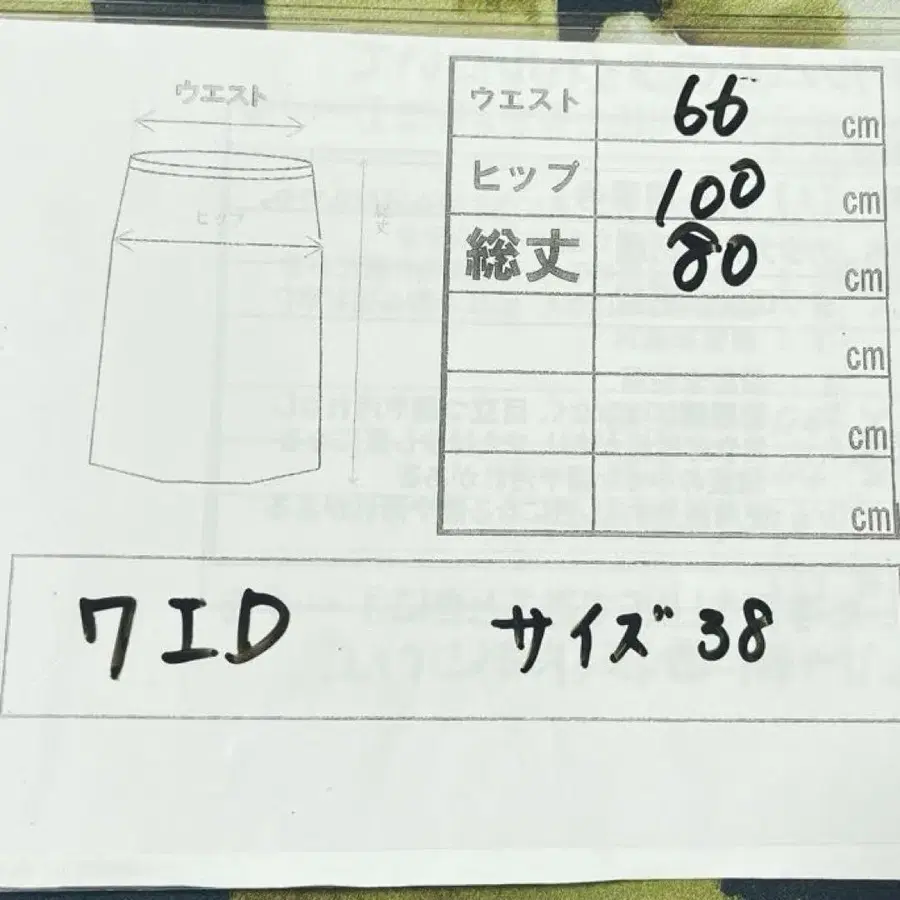 ウエスト
ヒップ
総丈
ウエスト 66 cm
ヒップ 100 cm
総丈 80 cm
cm
cm
cm
7ID サイズ 38